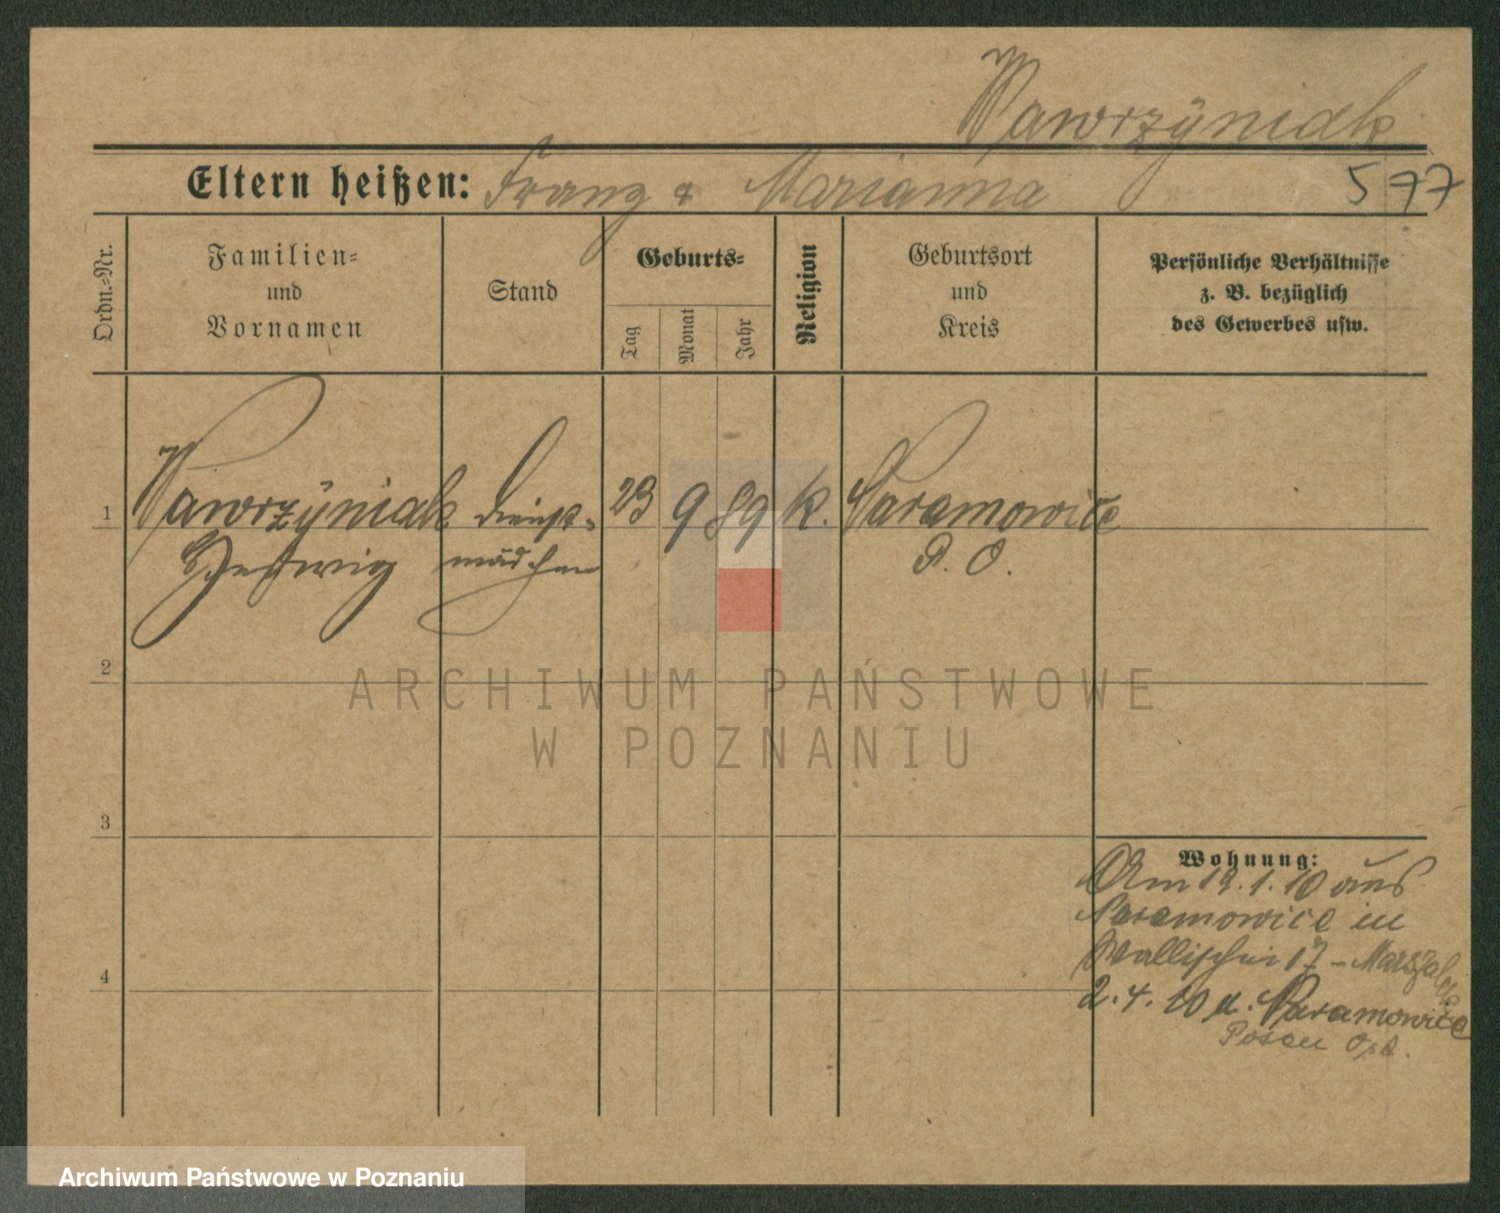 Wawrzyniak
Eltern heißen: Franz & Marianna 577
Ordn.=Nr.
Familien=
und
Vornamen
Stand
Geburts=
Tag
Monat
Jahr
Religion
Geburtsort
und
Kreis
Persönliche Verhältnisse
z. B. bezüglich
des Gewerbes usw.
1 Wawrzyniak Dienst= 23 9 89 k. Naramowice
Hedwig mädchen P. O.
2
3
4
Wohnung:
Am 19.1.10 aus
Naramowice in
Wallischei 17 –
2.4.10 n. Naramowice
Posen Ost.
ARCHIWUM PAŃSTWOWE
W POZNANIU
Archiwum Państwowe w Poznaniu